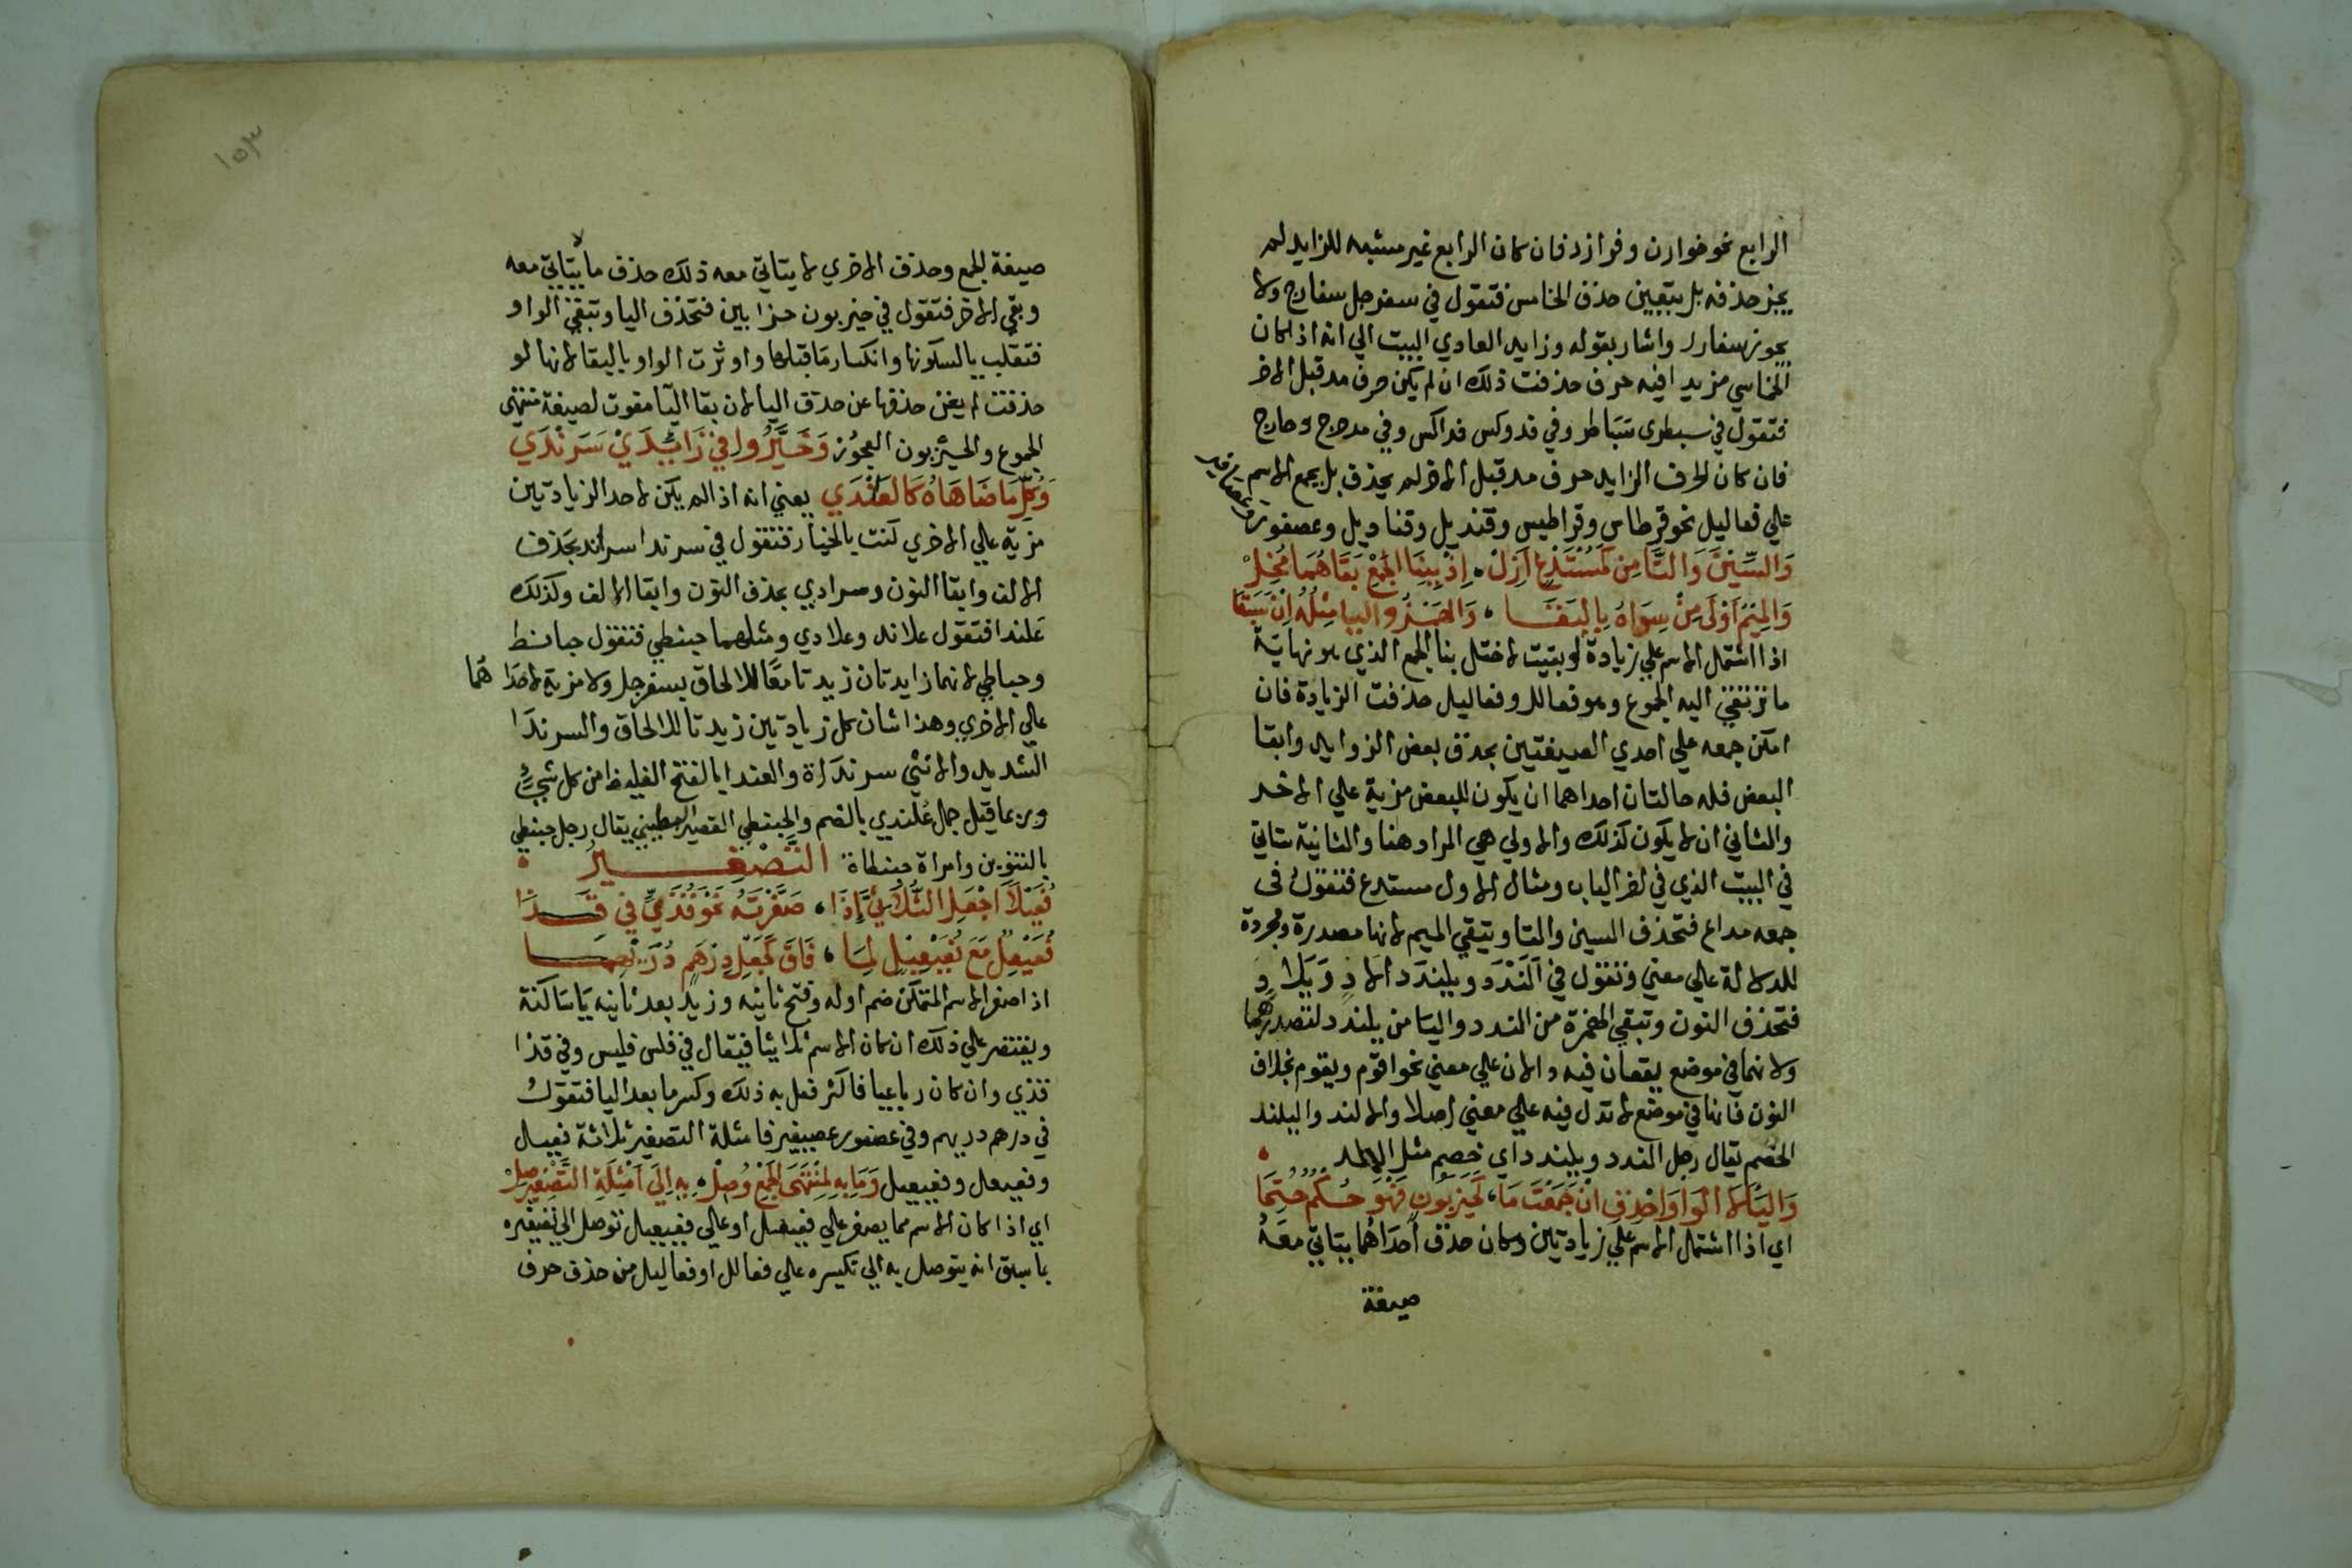 الرابع نحو خوارن وفرازد فان كان الرابع غير مشبه للزايد لم
يجز حذفه بل يتعين حذف الخامس فتقول في سفرجل سفارج ولا
يجوز سفارل واشار بقوله وزايد العادي البيت الي انه اذا كان
الخماسي مزيدا فيه حرف حذفت ذلك ان لم يكن حرف مد قبل الاخر
فتقول في سبطرى سباطر وفي فدوكس فداكس وفي مدحرج دحارج
فان كان الحرف الزايد حرف مد قبل الاخر لم يحذف بل يجمع الاسم
علي فعاليل نحو قرطاس وقراطيس وقنديل وقناديل وعصفور
وعصافير
وَالسِّينَ وَالتَّا مِن كَمُسْتَدْعٍ اَزِلْ، اِذْ بِبِنَا الْجَمْعِ بَقَاهُمَا مُخِلْ
وَالمِيْمُ اَوْلَى مِنْ سِوَاهُ بِالبَقَا، وَالهَمْزُ واليا مِثْلُهُ اِنْ سَبَقَا
اذا اشتمل الاسم علي زيادة لو بقيت لاختل بنا الجمع الذي هو نهاية
ما ترتقي اليه الجموع وهو فعالل وفعاليل حذفت الزيادة فان
امكن جمعه علي احدي الصيغتين بحذف بعض الزوايد وابقا
البعض فله حالتان احداهما ان يكون للبعض مزية علي الاخر
والثاني ان لا يكون كذلك والاولي هي المراد هنا والثانية ستاتي
في البيت الذي في اخر الباب ومثال الاول مستدع فتقول في
جمعه مداع فتحذف السين والتا وتبقي الميم لانها مصدرة ومجردة
للدلالة علي معني وتقول في اَلَنْدَد ويلندَد الادِّ وَيَلادِّ
فتحذف النون وتبقي الهمزة من الندد واليا من يلندد لتصدرهما
ولانهما في موضع يقعان فيه دالان علي معني نحو اقوم ويقوم بخلاف
النون فانها في موضع لا تدل فيه علي معني اصلا والالند واليلند
الخصم يقال رجل الندد ويلندد اي خصم مثل الالد
وَاليَا لا الوَاوَ احْذِفِ انْ جَمَعْتَ مَا، كَحَيْزَبُونٍ فَهْوَ حُكْمٌ حُتِمَا
اي اذا اشتمل الاسم علي زيادتين وكان حذف احداهُما يتاتي معَهُ
صيغة
١٥٣
صيغة الجمع وحذف الاخري لا يتاتي معه ذلك حذف ما لا يتاتي معه
وبقي الاخر فتقول في حيزبون حزابين فتحذف اليا وتبقي الواو
فتقلب يا لسكونها وانكسار مَا قبلها واوثرت الواو بالبقا لانها لو
حذفت لم يغن حذفها عن حذف اليا لان بقا اليَا مفوت لصيغة منتهى
الجموع والحيزبون العجوز وَخَيَّرُوا في زَائِدَيْ سَرَنْدَي
وَكلِّ مَا ضَاهَاهُ كَالعَلَنْدَي يعني انه اذا لم يكن لاحد الزيادتين
مزيَة علي الاخري كنت بالخيار فتقول في سرندا سراند بحَذف
الالف وابقا النون وسرادي بحذف النون وابقا الالف وكذلك
عَلندا فتقول علاند وعلادي ومثلهما حبنطي فتقول حبانط
وحباطي لانهما زايدتان زيدتا معًا للالحاق بسفرجل ولا مزية لاحداهُما
علي الاخري وهذا شان كل زيادتين زيدتا للالحاق والسرندَا
الشديد والانثي سرنداة والعندا بالفتح الغليظ من كل شيء
وربما قيل جمل عُلندي بالضم والحبنطي القصير البطين يقال رجل حبنطي
بالتنوين وامراة حبنطاة التَّصْغِيرُ
فُعَيْلاً اجْعَلِ الثُّلاثِيَّ إِذَا، صَغَّرْتَهُ نَحْوُ قُذَيٍّ في قَذَا
فُعَيْعِلٌ مَعَ فُعَيْعِيْلٍ لِمَا، فَاقَ كَجَعْلِ دِرْهَمٍ دُرَيْهِمَا
اذا صغر الاسم المتمكن ضم اوله وفتح ثانيه وزيد بعد ثانيه يَا سَاكنة
ويقتصر علي ذلك ان كان الاسم ثلاثيا فيقال في فلس فليس وفي قذا
قذي وان كان رباعيا فاكثر فعل به ذلك وكسر ما بعد اليا فتقول
في درهم دريهم وفي عصفور عصيفير فامثلة التصغير ثلاثة فعيل
وفعيعل وفعيعيل وَمَا بِهِ لِمُنْتَهَى الجَمْعِ وُصِلْ، بِهِ اِلَى اَمْثِلَةِ التَّصْغِيرِ صِلْ
اي اذا كان الاسم مما يصغر علي فعيعل او علي فعيعيل توصل الي تصغيره
بما سبق انه يتوصل به الي تكسيره علي فعالل او فعاليل من حذف حرف